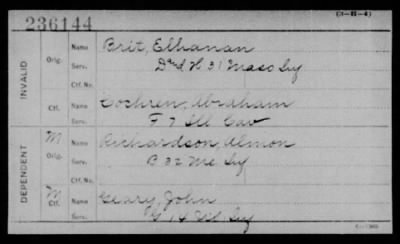 (3-H-4)
236144
INVALID
Orig.
Name Brit, Elhanan
Serv. D and H 31 Mass Inf
Ctf. No.
Ctf.
Name Cochren, Abraham
Serv. F 7 Ill Cav
DEPENDENT
M
Orig.
Name Richardson, Almon
Serv. B 32 Me Inf
Ctf. No.
M
Ctf.
Name Geary, John
Serv. G 14 Inf